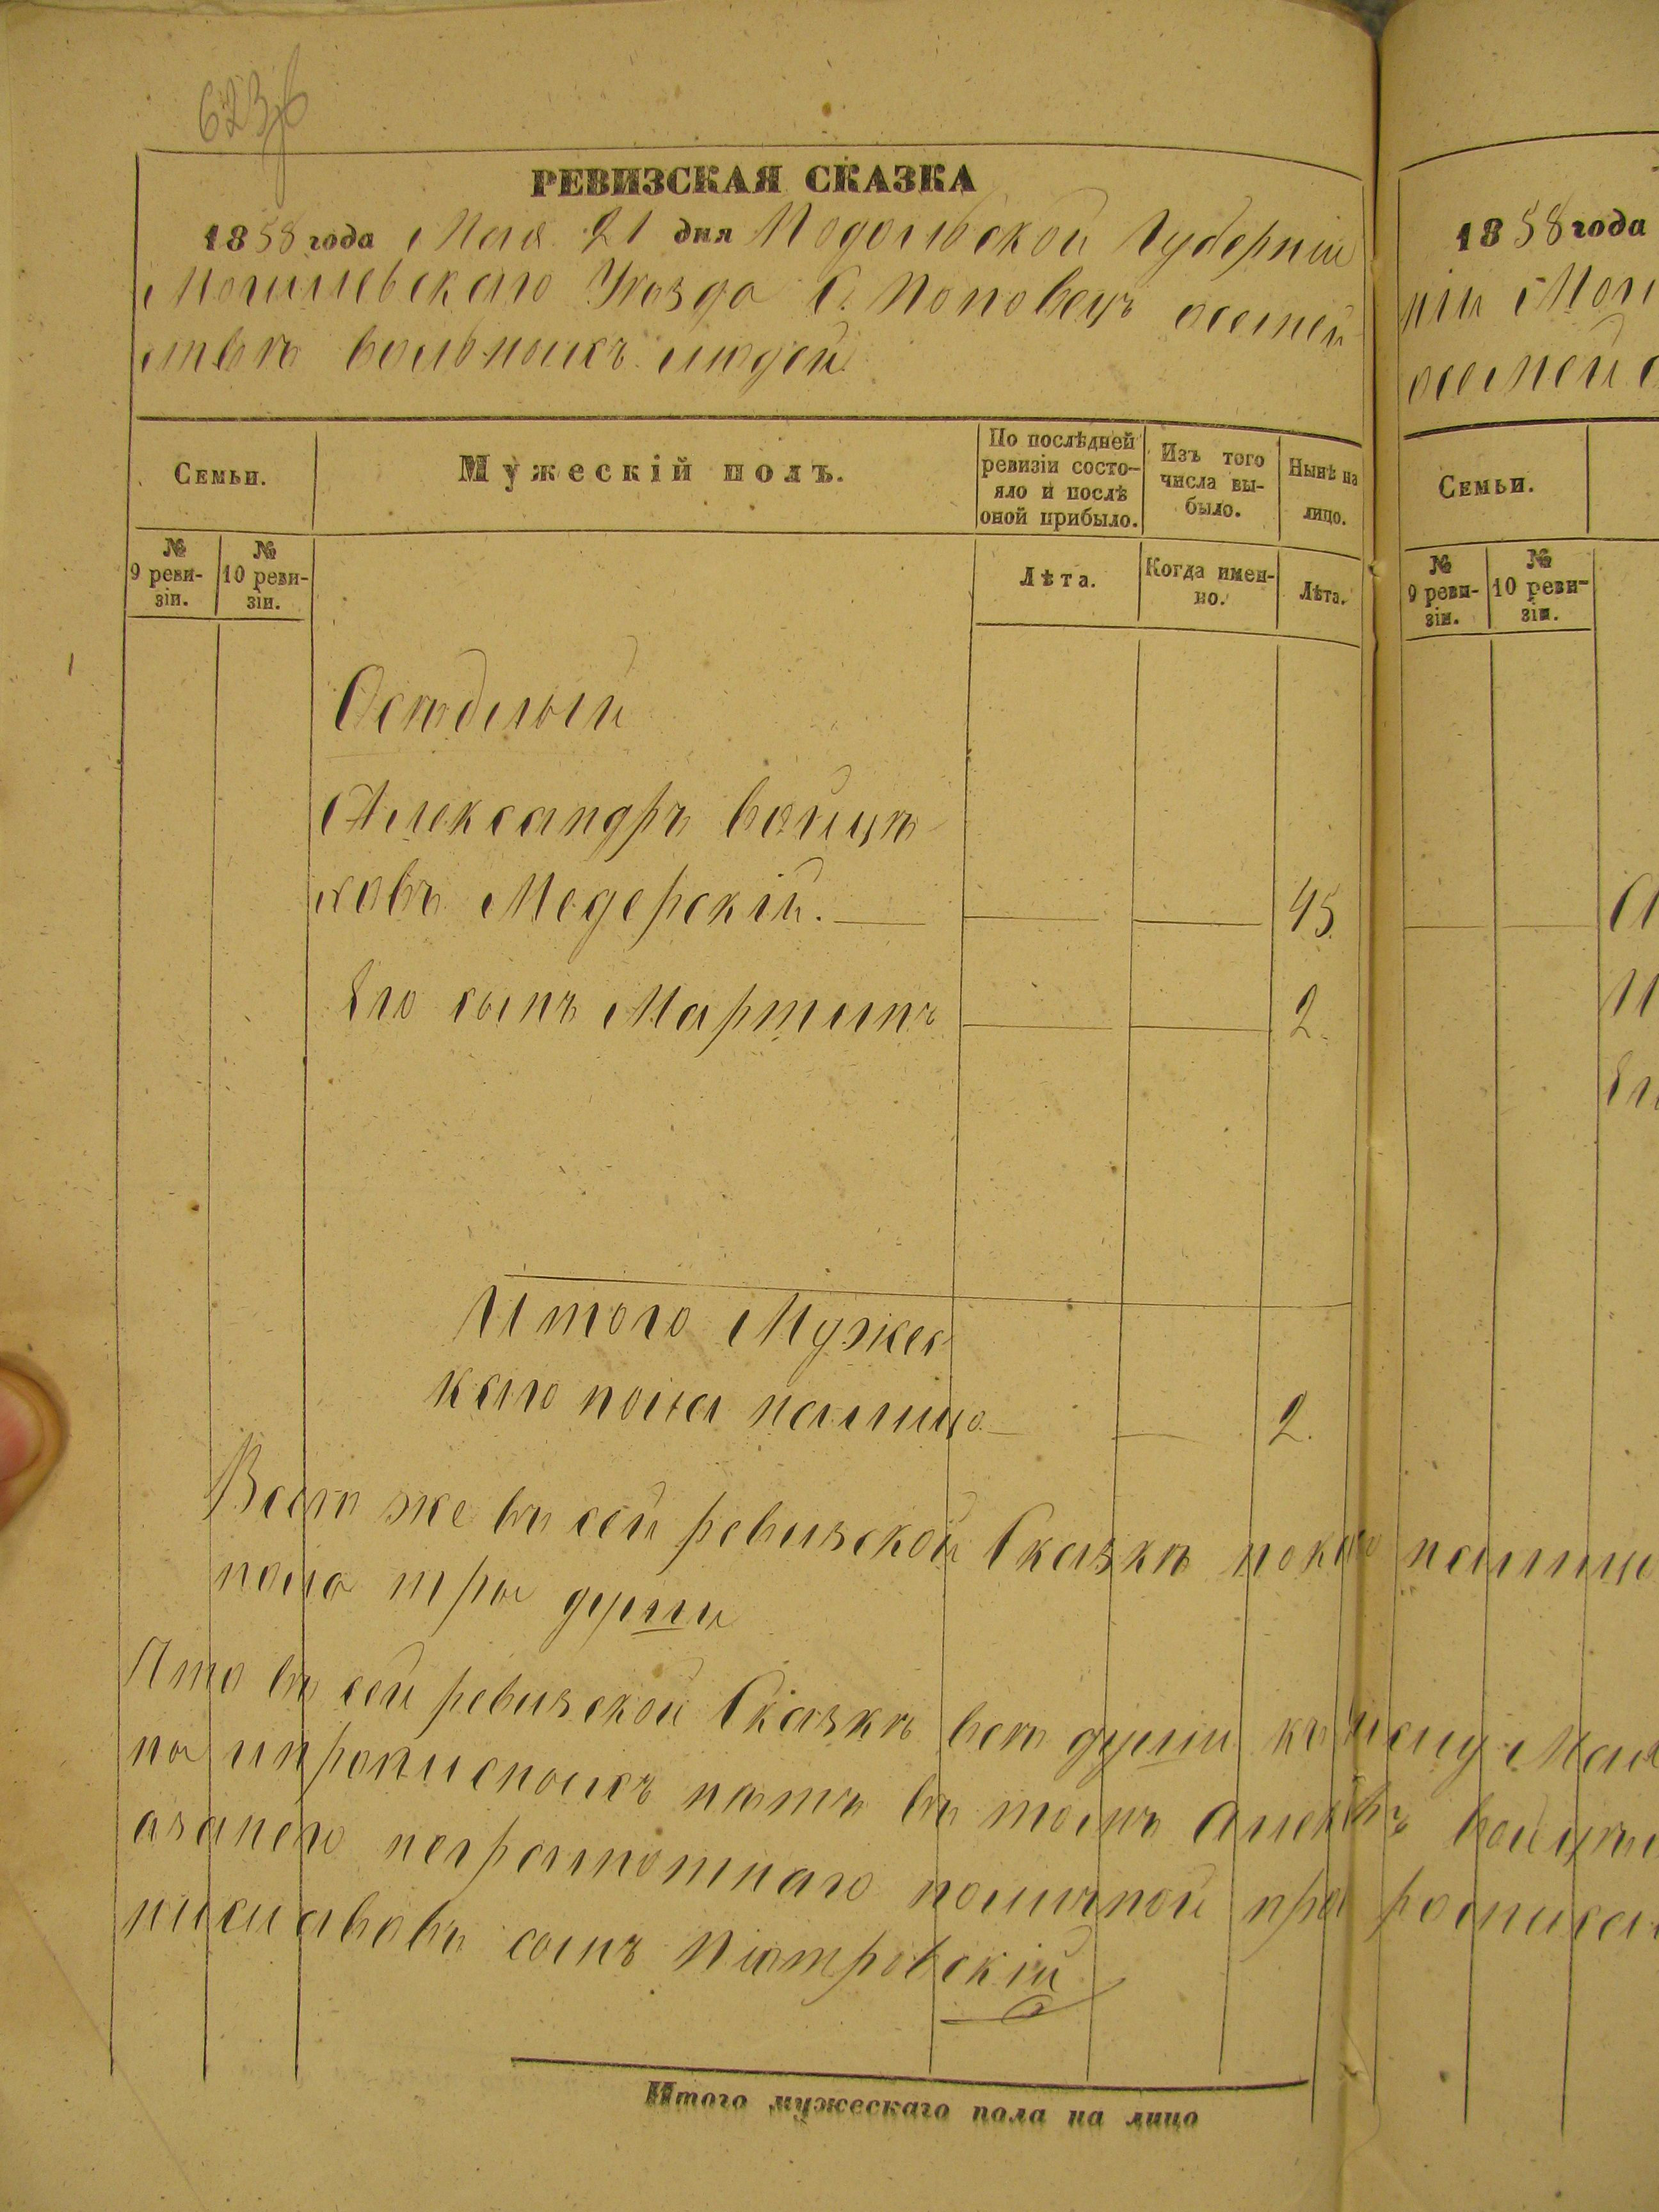 623
РЕВИЗСКАЯ СКАЗКА
1858 года Мая 21 дня Подольской Губерніи
Могилевскаго Уѣзда С. Поповецъ осѣмей
ствѣ вольныхъ людей
Семьи.
Мужескій полъ.
По послѣдней
ревизіи состо-
яло и послѣ
оной прибыло.
Изъ того
числа вы-
было.
Нынѣ на
лицо.
№
9 реви-
зіи.
№
10 реви-
зіи.
Лѣта.
Когда имен-
но.
Лѣта.
Осѣдлый
Александръ Войцѣ
ховъ Медерскій.
45.
Его сынъ Мартынъ
2.
Итого Мужес
каго пола налицо
2.
Всего же въ сей ревизской Сказкѣ налице
пола три души
Что въ сей ревизской Сказкѣ всѣ души къ
и прописныхъ нѣтъ въ томъ
неграмотнаго личной
сынъ Піотровскій
Итого мужескаго пола на лицо
1858 года
осѣмей
Семьи.
№
9 реви-
зіи.
№
10 реви-
зіи.